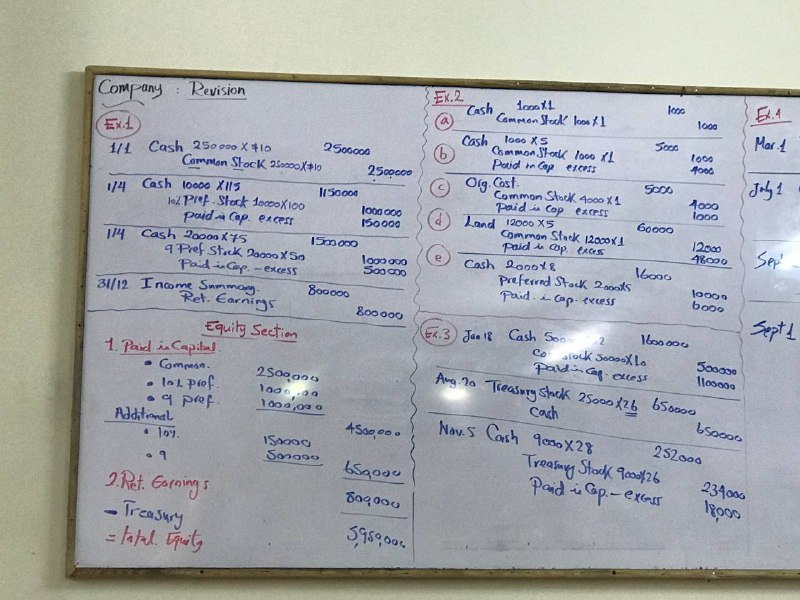 Company : Revision
Ex.1
1/1 Cash 250000 X $10 2500000
Common Stock 250000X$10 2500000
1/4 Cash 10000 X 115 1150000
10% Pref. Stock 10000X100 1000000
paid in Cap. excess 150000
1/4 Cash 20000X75 1500000
9 Pref. Stock 20000X50 1000000
Paid in Cap - excess 500000
31/12 Income Summary. 800000
Ret. Earnings 800000
Equity Section
1. Paid in Capital.
• Common. 2500,000
• 10% pref. 1000,000
• 9 pref. 1000,000
4500,000
Additional
• 10%. 150000
• 9 500000
650,000
2. Ret. Earnings 800,000
- Treasury
= total Equity 5,950,000
Ex.2
a Cash 1000X1 1000
Common Stock 1000X1 1000
b Cash 1000 X 5 5000
Common Stock 1000 X1 1000
Paid in Cap excess 4000
c Org. Cost. 5000
Common Stock 4000X1 4000
Paid in Cap excess 1000
d Land 12000X5 60000
Common Stock 12000X1 12000
Paid in Cap. excess 48000
e Cash 2000X8 16000
preferred Stock 2000X5 10000
Paid. in Cap. excess 6000
Ex.3 Jan 18 Cash 1600000
Stock 50000X10 500000
paid in Cap. excess 1100000
Aug. 20 Treasury Stock 25000X26 650000
Cash 650000
Nov. 5 Cash 9000X28 252000
Treasury Stock 9000X26 234000
Paid in Cap. - excess 18,000
Ex.4
Mar. 1
July 1
Sep
Sept 1